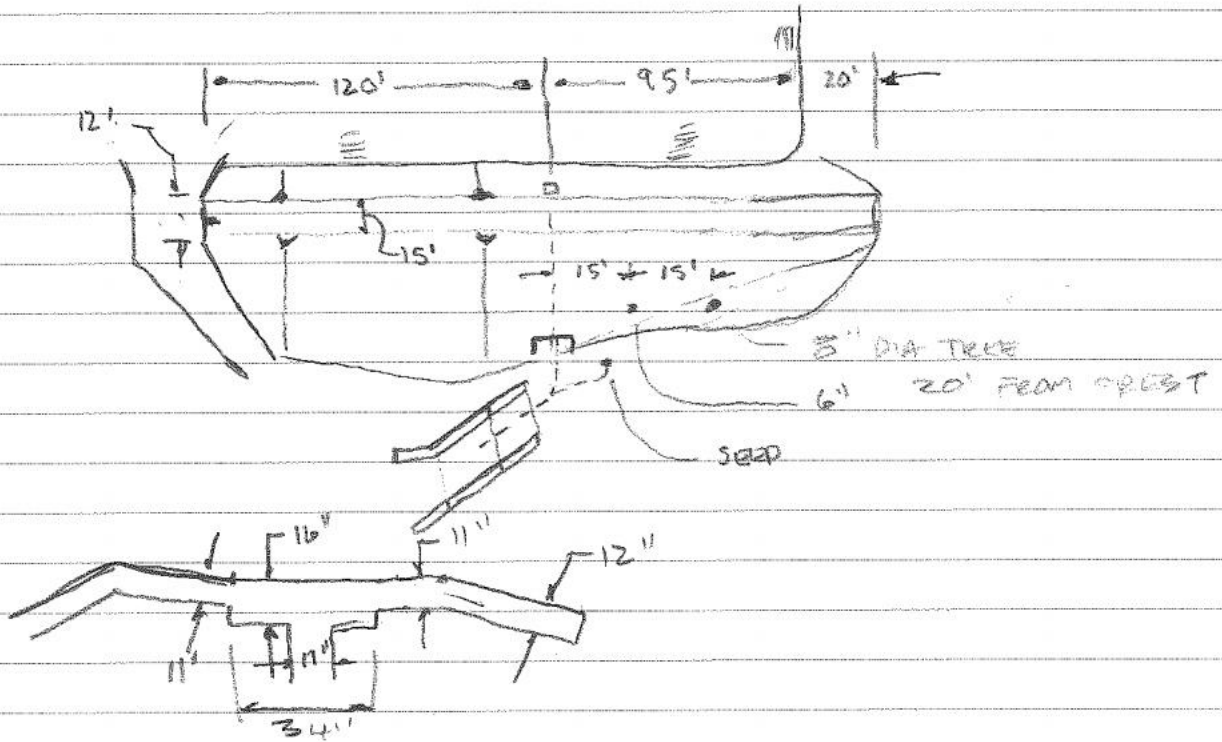 120'
95'
20'
12'
15'
15'
15'
DIA TREE
20' FROM CREST
6"
SEEP
16"
11"
12"
11"
34"